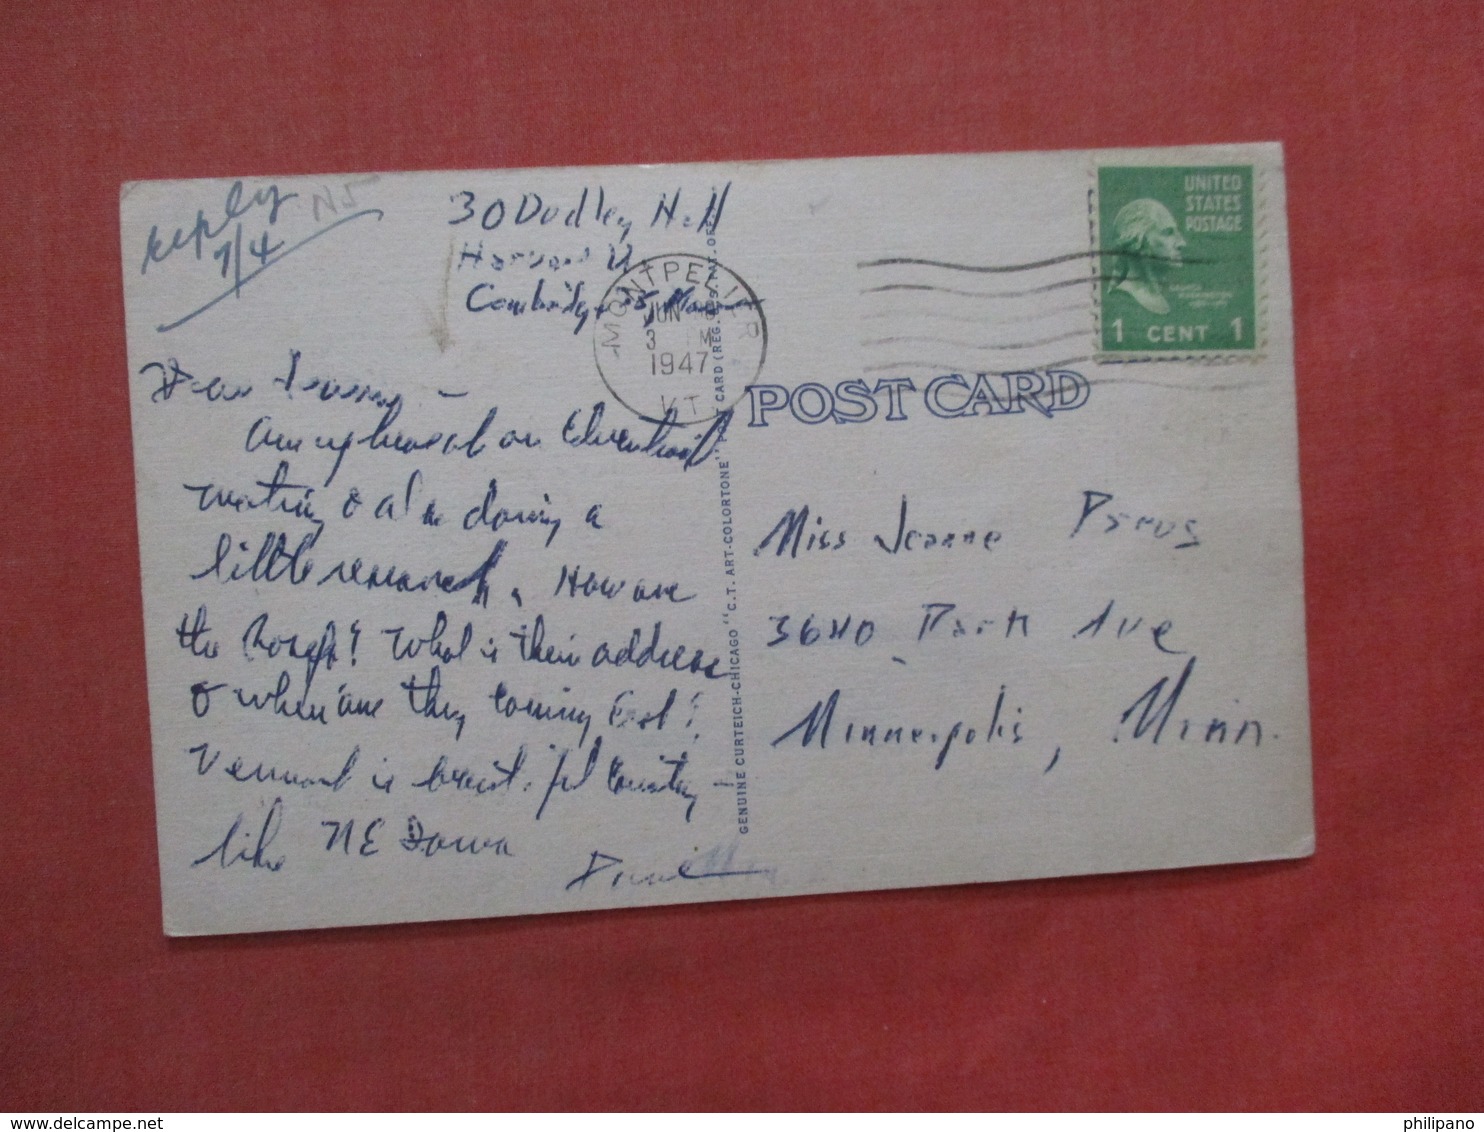 reply
7/4
30 Dudley Hall
Harvard U
Cambridge Mass
MONTPELIER
JUN
3 PM
1947
VT.
UNITED
STATES
POSTAGE
1 CENT 1
POST CARD
GENUINE CURTEICH-CHICAGO "C.T. ART-COLORTONE" POST CARD (REG. U.S. PAT. OFF.)
Dear
Am up here at an Educational
meeting & also doing a
little research. How are
the What is their address
& when are they coming East?
Vermont is beautiful country –
like NE Iowa
Miss Jeanne
3640 Park Ave
Minneapolis, Minn.
philipano